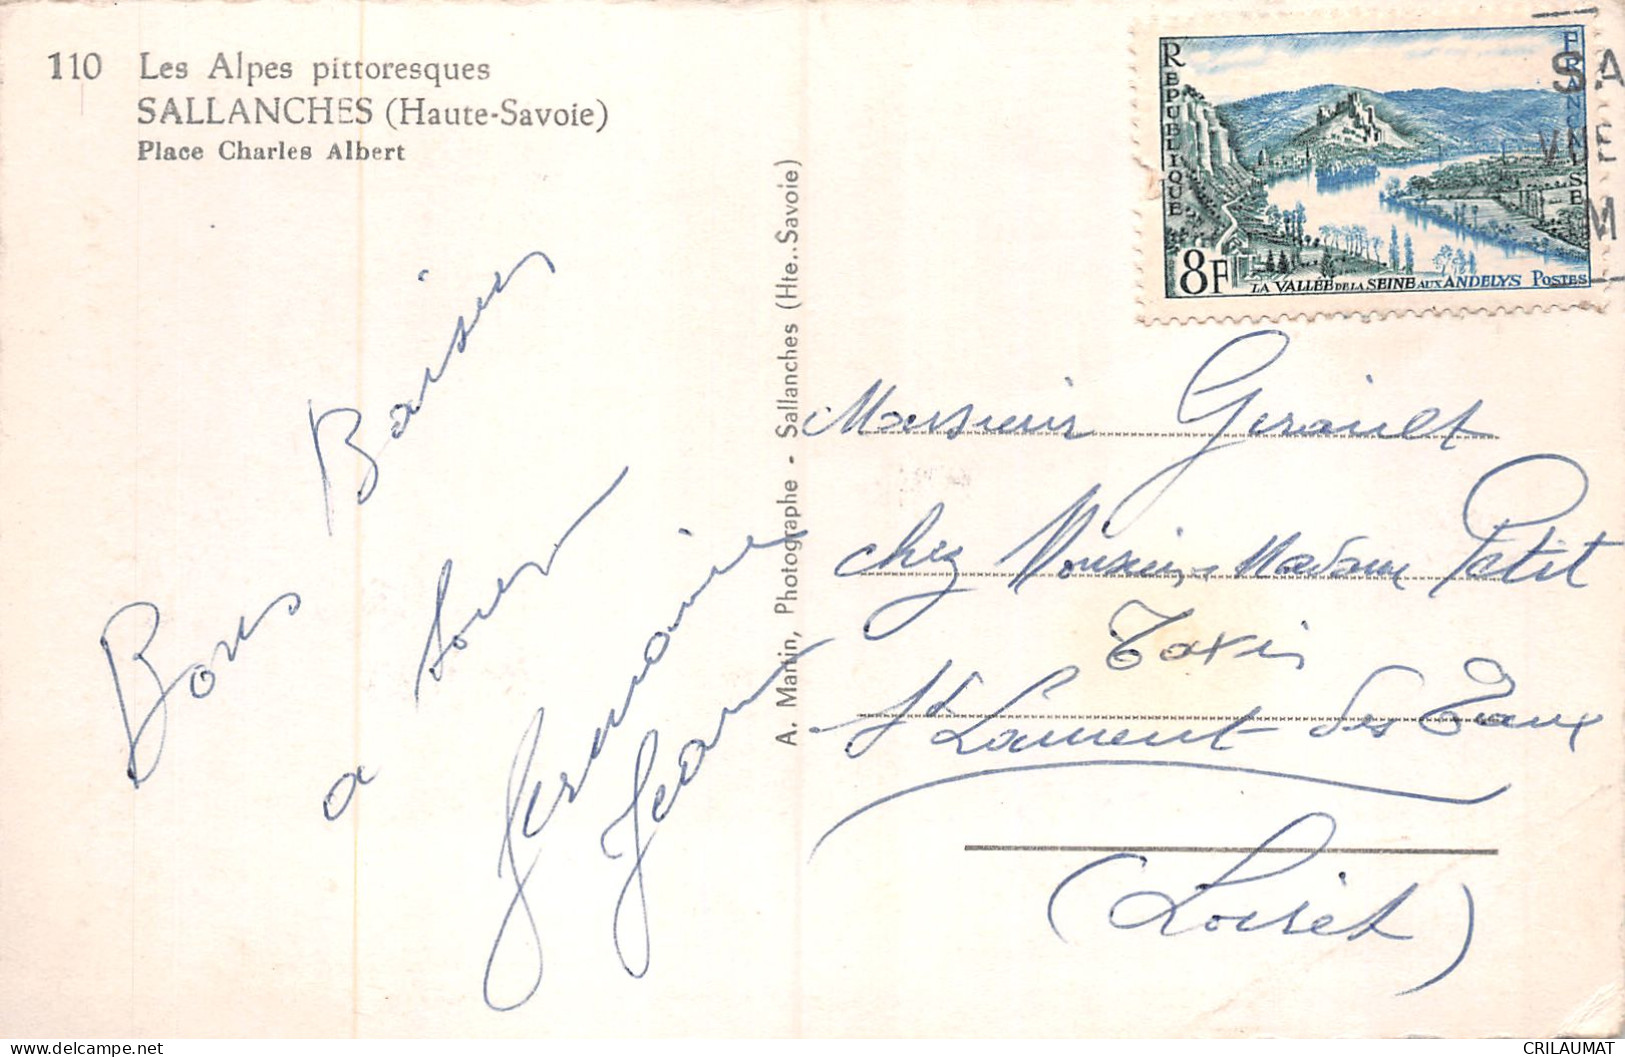 110 Les Alpes pittoresques
SALLANCHES (Haute-Savoie)
Place Charles Albert
Bons Baisers
a tous
Germaine
Jean
A. Martin, Photographe - Sallanches (Hte..Savoie)
REPUBLIQUE
FRANCAISE
8F
LA VALLEE DE LA SEINE AUX ANDELYS POSTES
SA
M
Monsieur Girault
chez Monsieur Madame Petit
Taxis
St Laurent des Eaux
(Loiret)
delcampe.net
CRILAUMAT